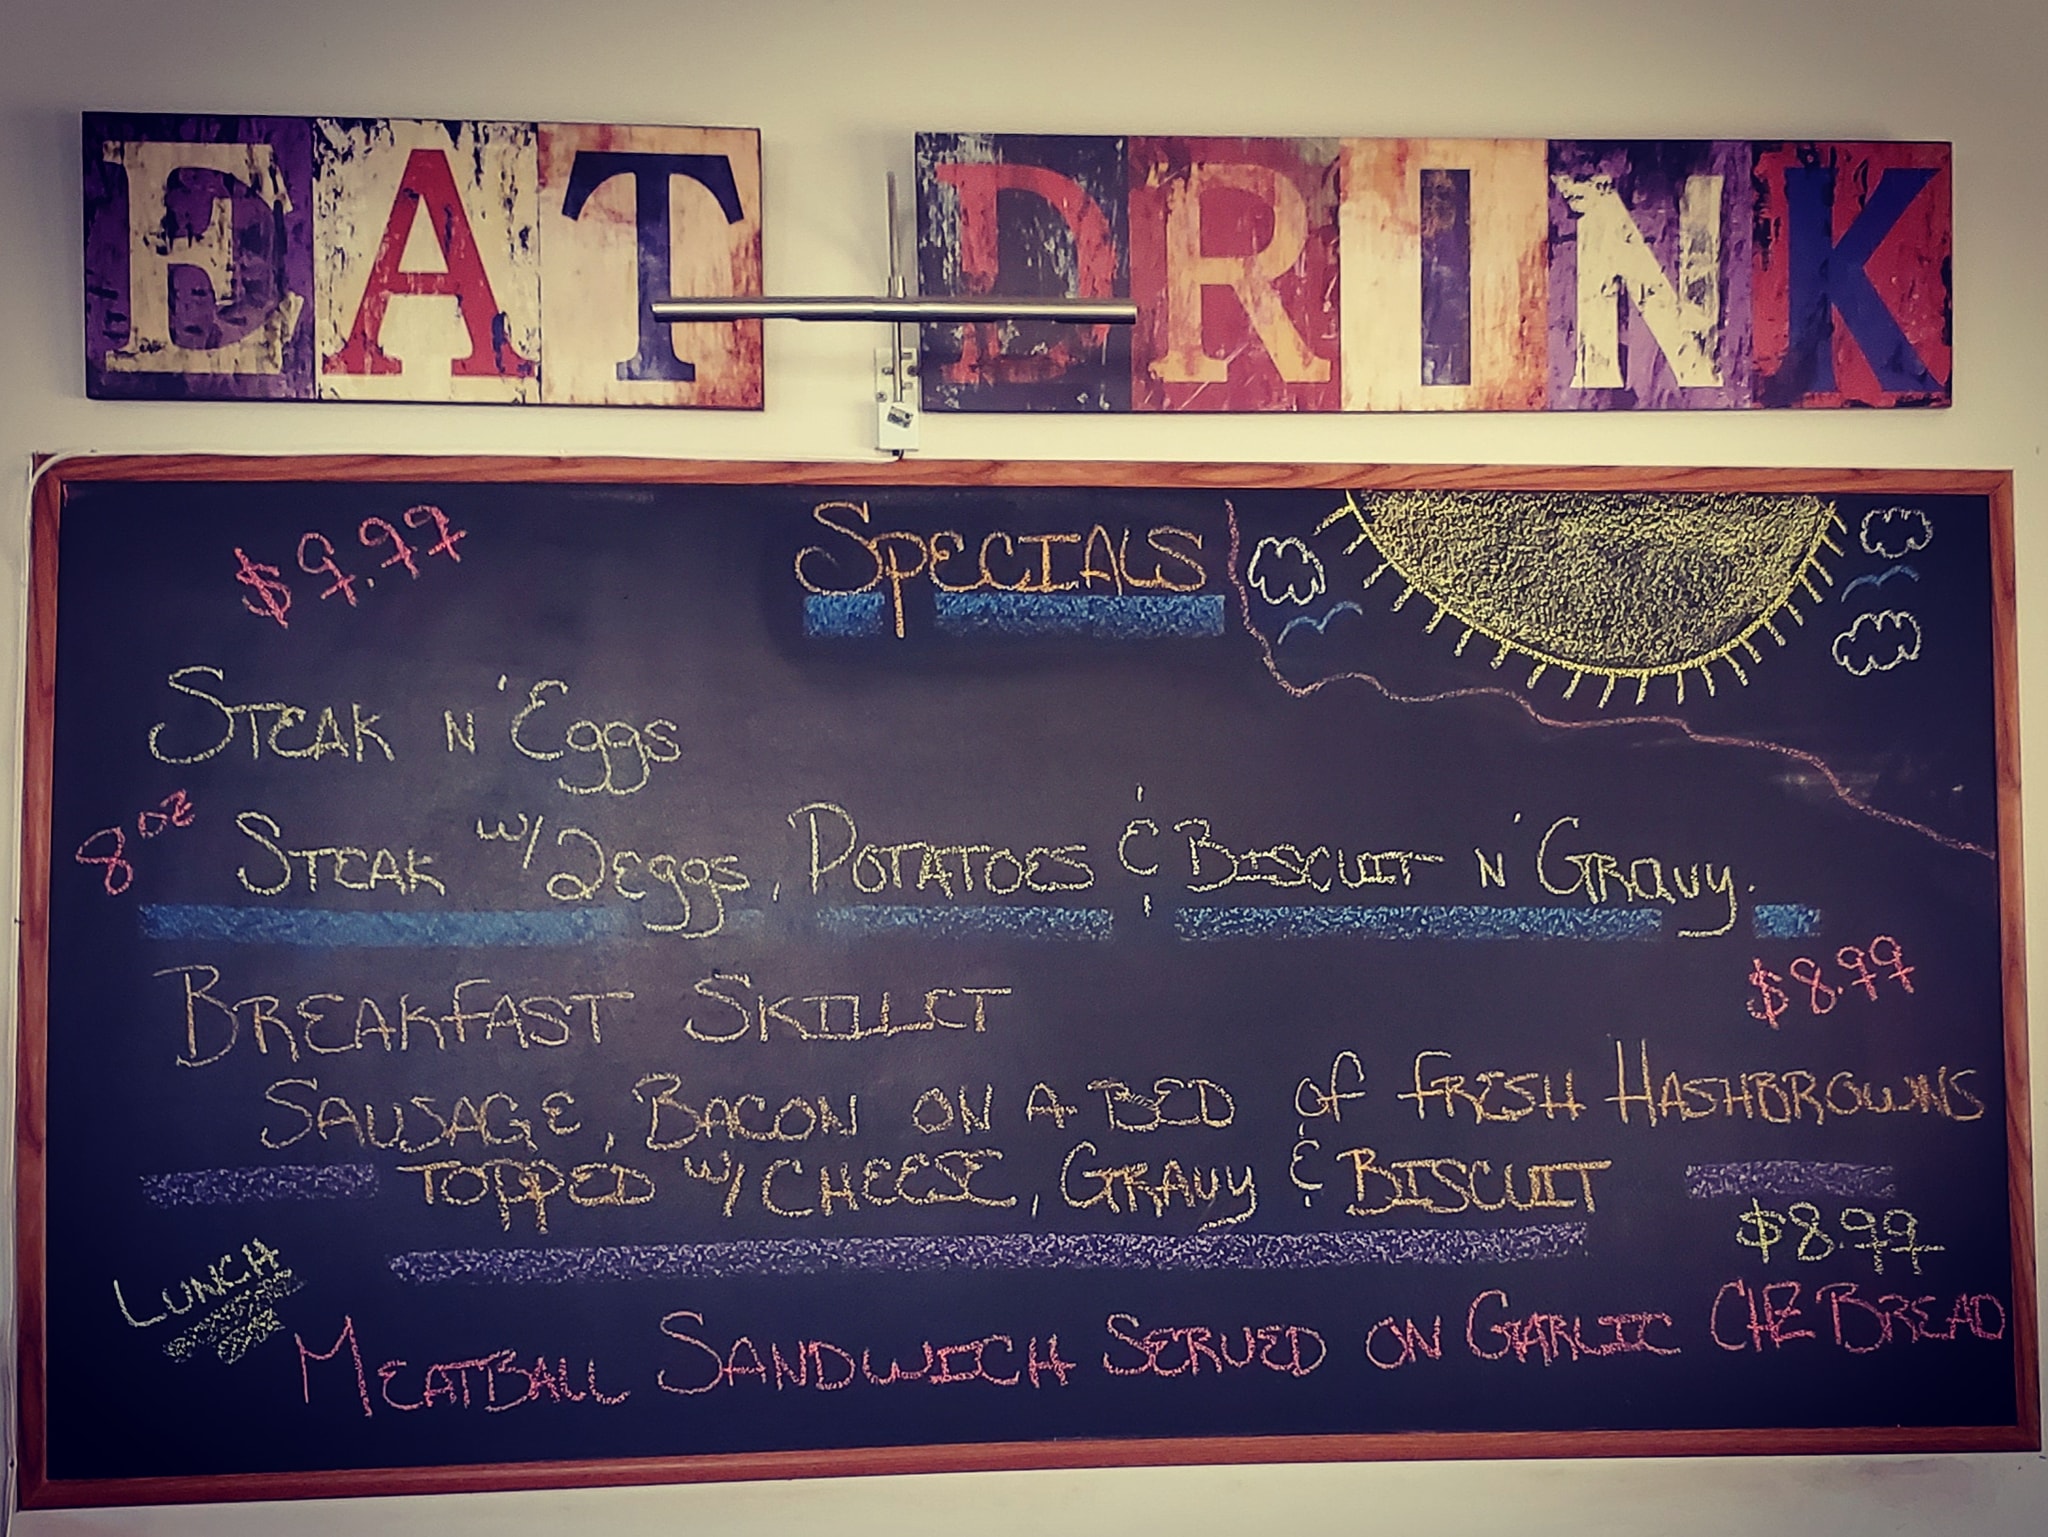 EAT DRINK
$9.99
SPECIALS
STEAK N' Eggs
8oz STEAK w/ 2 eggs, POTATOES & BISCUIT N' GRAVY.
BREAKFAST SKILLET
$8.99
SAUSAGE, BACON ON A BED OF FRESH HASHBROWNS
TOPPED w/ CHEESE, GRAVY & BISCUIT
$8.99
LUNCH
MEATBALL SANDWICH SERVED ON GARLIC CHZ BREAD